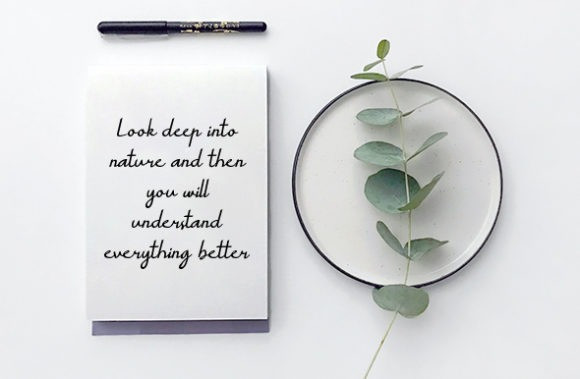 Look deep into
nature and then
you will
understand
everything better